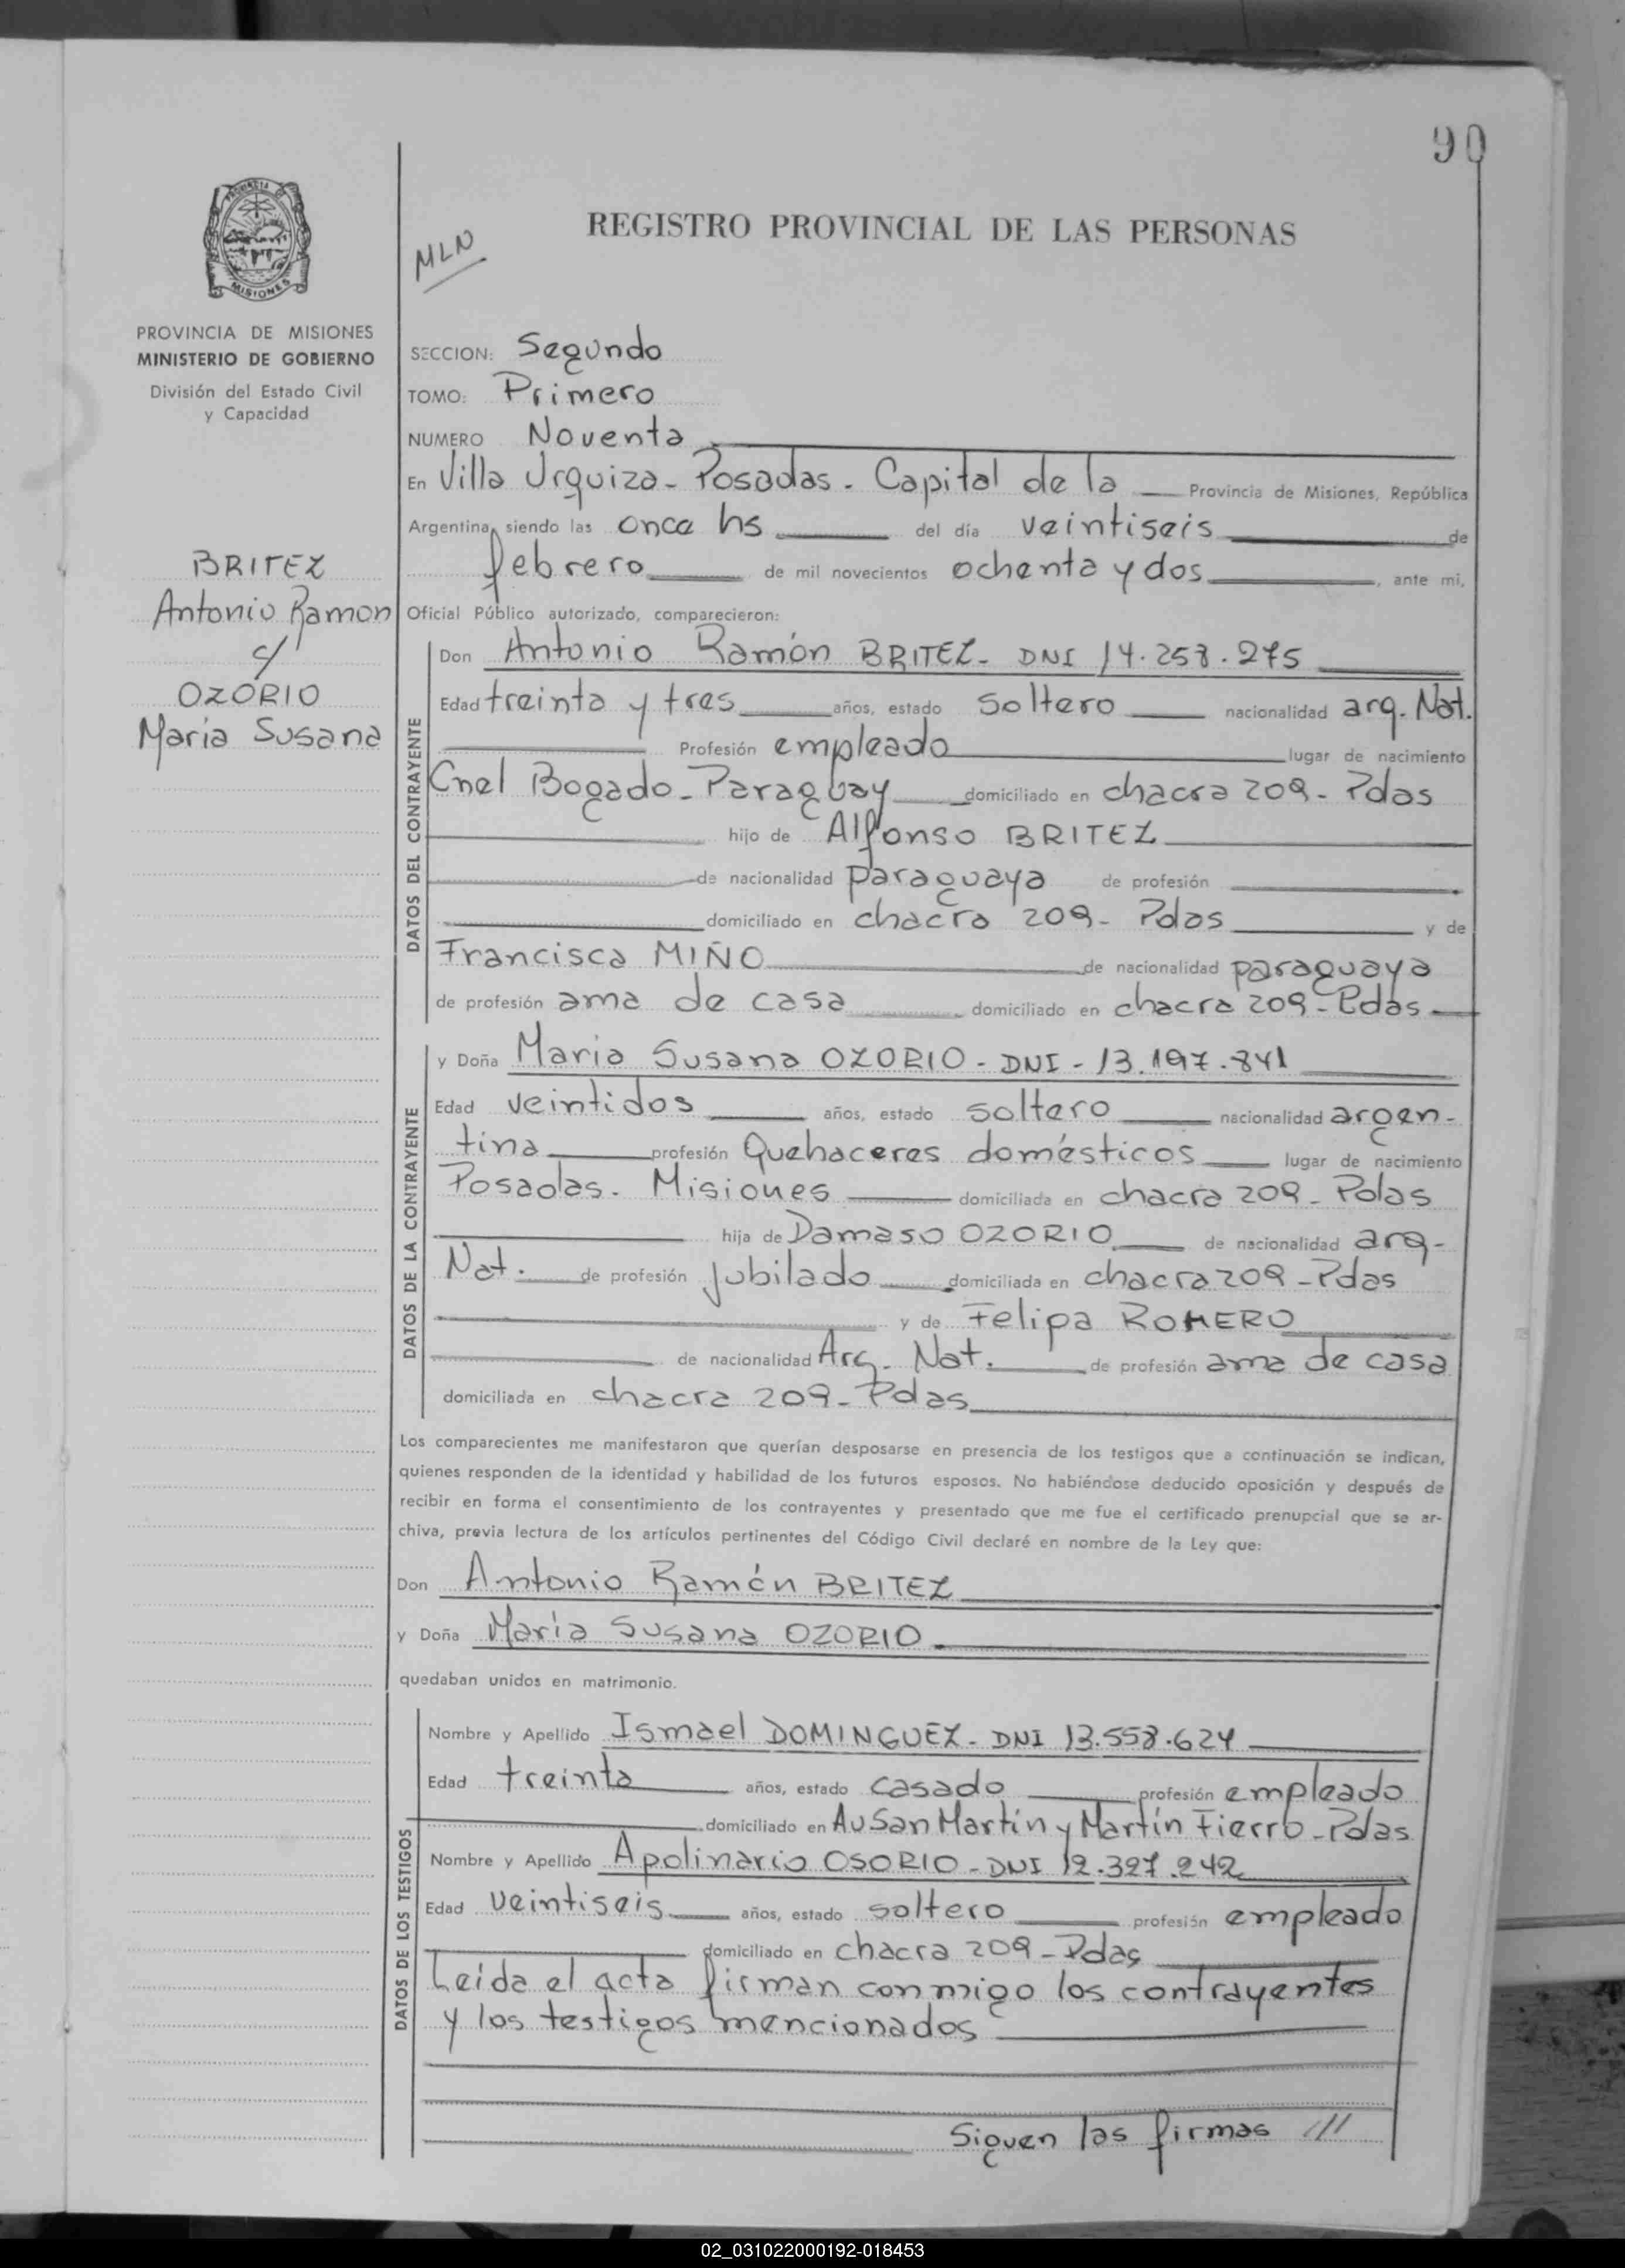 90
REGISTRO PROVINCIAL DE LAS PERSONAS
MLN
PROVINCIA DE MISIONES
MISIONES
PROVINCIA DE MISIONES
MINISTERIO DE GOBIERNO
División del Estado Civil
y Capacidad
BRITEZ
Antonio Ramon
c/
OZORIO
Maria Susana
SECCION: Segundo
TOMO: Primero
NUMERO Noventa
En Villa Urquiza - Posadas - Capital de la Provincia de Misiones, República
Argentina, siendo las once hs del día veintiseis de
febrero de mil novecientos ochenta y dos, ante mi,
Oficial Público autorizado, comparecieron:
DATOS DEL CONTRAYENTE
Don Antonio Ramón BRITEZ - DNI 14.258.275
Edad treinta y tres años, estado soltero nacionalidad arg. Nat.
Profesión empleado lugar de nacimiento
Cnel Bogado - Paraguay domiciliado en chacra 209 - Pdas
hijo de Alfonso BRITEZ
de nacionalidad paraguaya de profesión
domiciliado en chacra 209 - Pdas y de
Francisca MIÑO de nacionalidad paraguaya
de profesión ama de casa domiciliado en chacra 209 - Pdas
DATOS DE LA CONTRAYENTE
y Doña Maria Susana OZORIO - DNI - 13.197.841
Edad veintidos años, estado soltero nacionalidad argen-
tina profesión Quehaceres domésticos lugar de nacimiento
Posadas. Misiones domiciliada en chacra 209 - Pdas
hija de Damaso OZORIO de nacionalidad arg-
Nat. de profesión jubilado domiciliada en chacra 209 - Pdas
y de Felipa ROMERO
de nacionalidad Arg. Nat. de profesión ama de casa
domiciliada en chacra 209 - Pdas
Los comparecientes me manifestaron que querían desposarse en presencia de los testigos que a continuación se indican,
quienes responden de la identidad y habilidad de los futuros esposos. No habiéndose deducido oposición y después de
recibir en forma el consentimiento de los contrayentes y presentado que me fue el certificado prenupcial que se ar-
chiva, previa lectura de los artículos pertinentes del Código Civil declaré en nombre de la Ley que:
Don Antonio Ramón BRITEZ
y Doña María Susana OZORIO
quedaban unidos en matrimonio.
DATOS DE LOS TESTIGOS
Nombre y Apellido Ismael DOMINGUEZ - DNI 13.558.624
Edad treinta años, estado casado profesión empleado
domiciliado en Av San Martín y Martín Fierro - Pdas
Nombre y Apellido Apolinario OSORIO - DNI 12.327.242
Edad veintiseis años, estado soltero profesión empleado
domiciliado en chacra 209 - Pdas
Leida el acta firman conmigo los contrayentes
y los testigos mencionados
Siguen las firmas ///
02_031022000192-018453